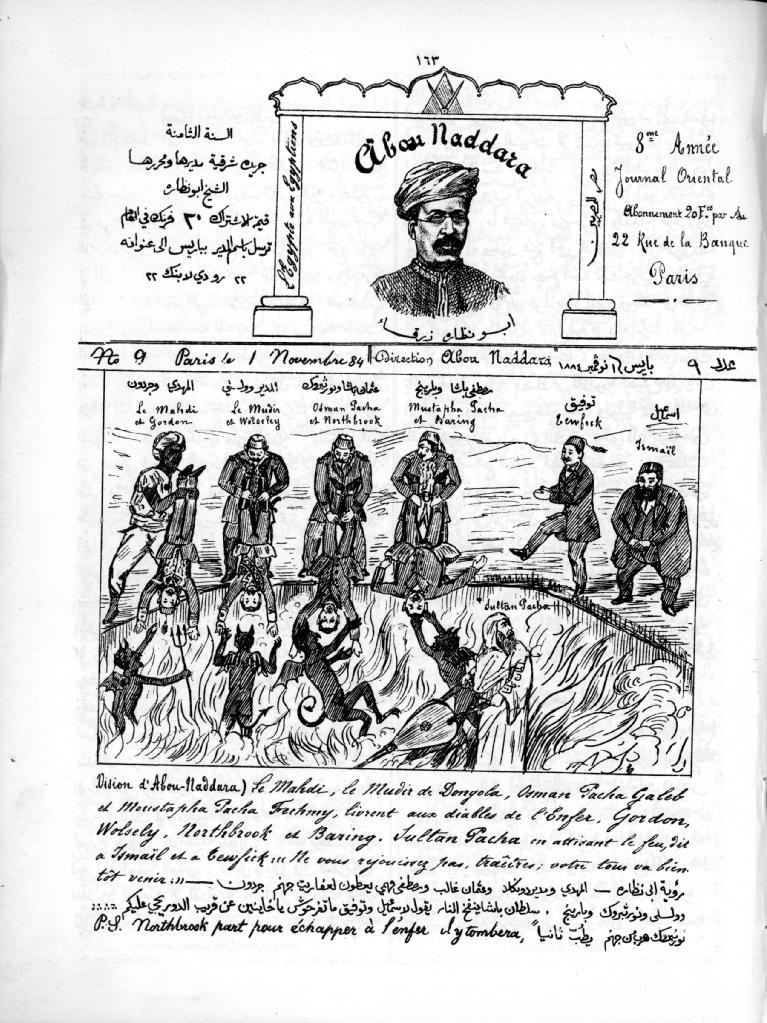 ١٦٣
السنة الثامنة
جريدة شرقية مديرها ومحررها
الشيخ ابو نظاره
قيمة الاشتراك ٢٠ فرنك في العام
ترسل باسم المدير بباريس الى عنوانه
٢٢ رو دي لا بنك ٢٢
L'Egypte aux Egyptiens
Abou Naddara
ابو نظاره زرقاء
مصر للمصريين
8me Année
Journal Oriental
Abonnement 20 F. par An
22 Rue de la Banque
Paris
No 9 Paris le 1 Novembre 84 Direction Abou Naddara باريس ١ نوڤمبر ١٨٨٤ عدد ٩
المهدي وجردون
Le Mahdi
et Gordon
المدير وولسلي
Le Mudir
et Wolseley
عثمان باشا ونورثبروك
Osman Pacha
et Northbrook
مصطفى باشا وبارينج
Mustapha Pacha
et Baring
توفيق
Tewfick
اسماعيل
Ismaïl
Sultan Pacha
Vision d'Abou-Naddara) Le Mahdi, le Mudir de Dongola, Osman Pacha Galeb
et Moustapha Pacha Fechmy, livrent aux diables de l'Enfer, Gordon,
Wolsely, Northbrook et Baring. Sultan Pacha en attisant le feu, dit
a Ismaïl et a Tewfick ... Ne vous rejouissez pas, traîtres; votre tour va bien
tôt venir
رؤية ابي نظاره — المهدي ومدير دونكلا وعثمان غالب ومصطفى فهمي يعطون لعفاريت جهنم جردون
وولسلي ونورثبروك وبارينج . سلطان باشا ينفخ النار يقول لاسماعيل وتوفيق ما تفرحوش يا خاينين عن قريب الدور يجي عليكم
P.S. Northbrook part pour échapper à l'enfer il y tombera,
نورثبروك هرب من جهنم يطب ثانيا